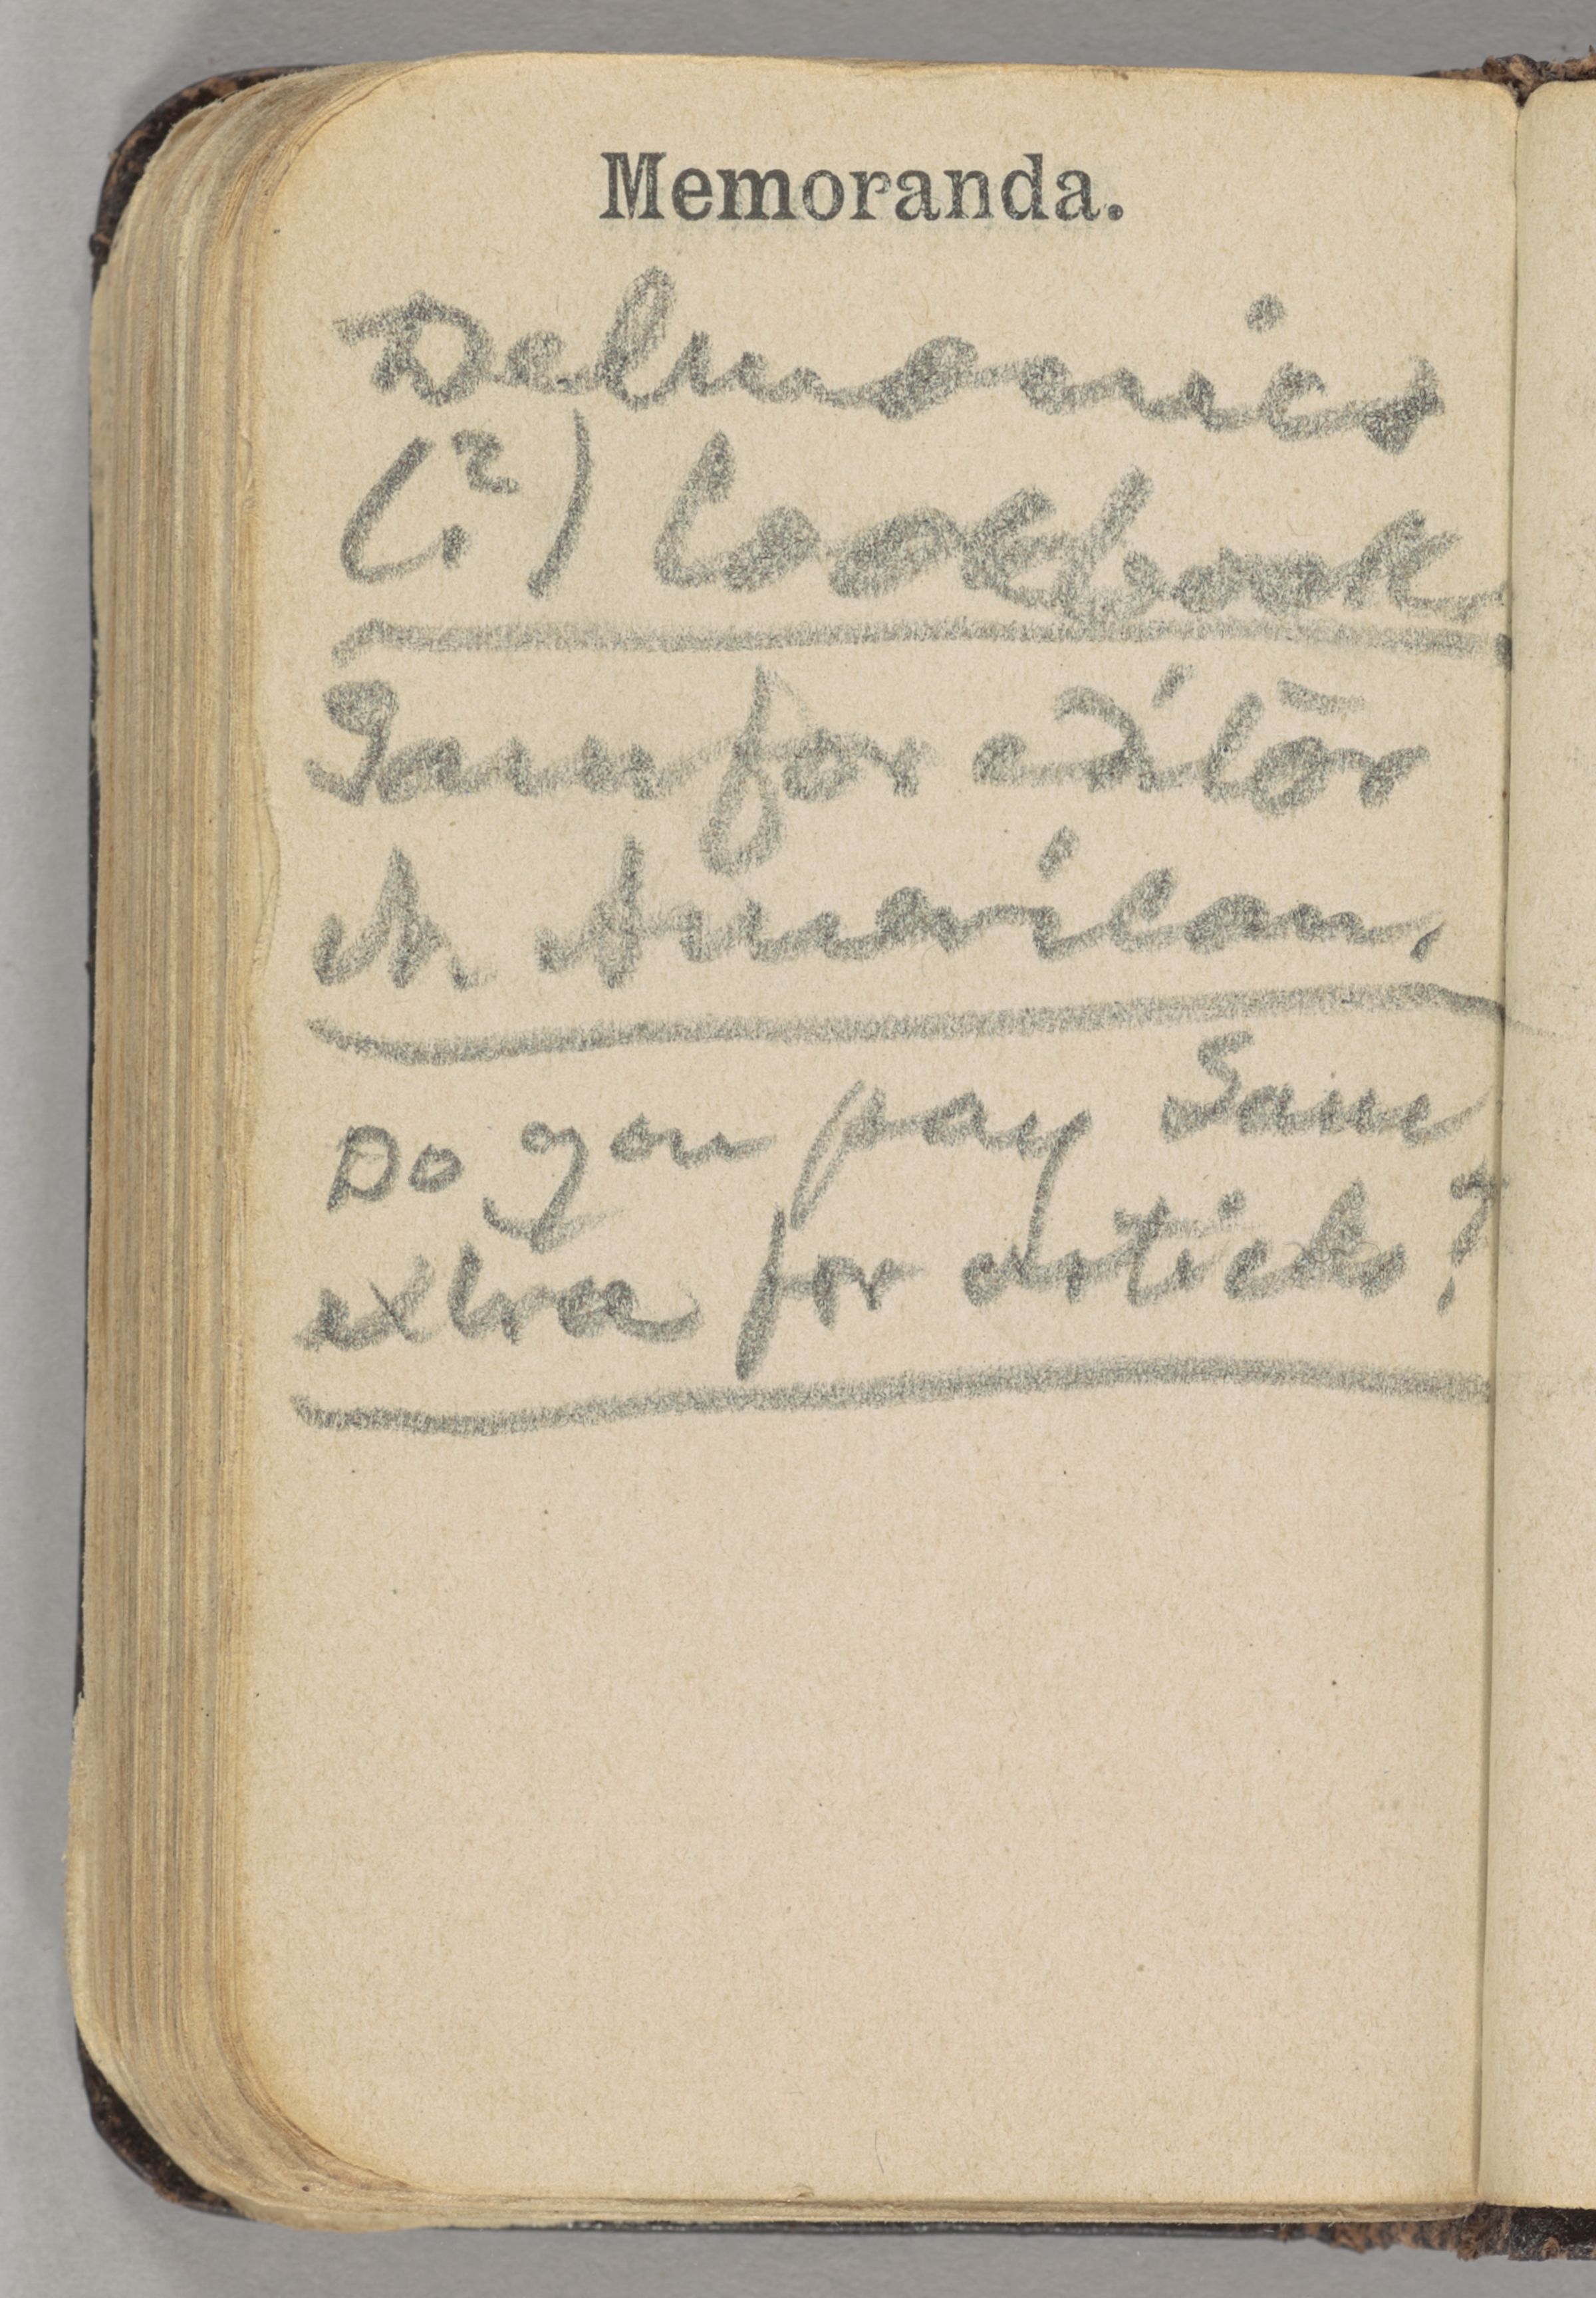 Memoranda.
Delmonics
(?) Cookbook
Sam for editor
N. American.
Do you pay Sam
extra for articles?